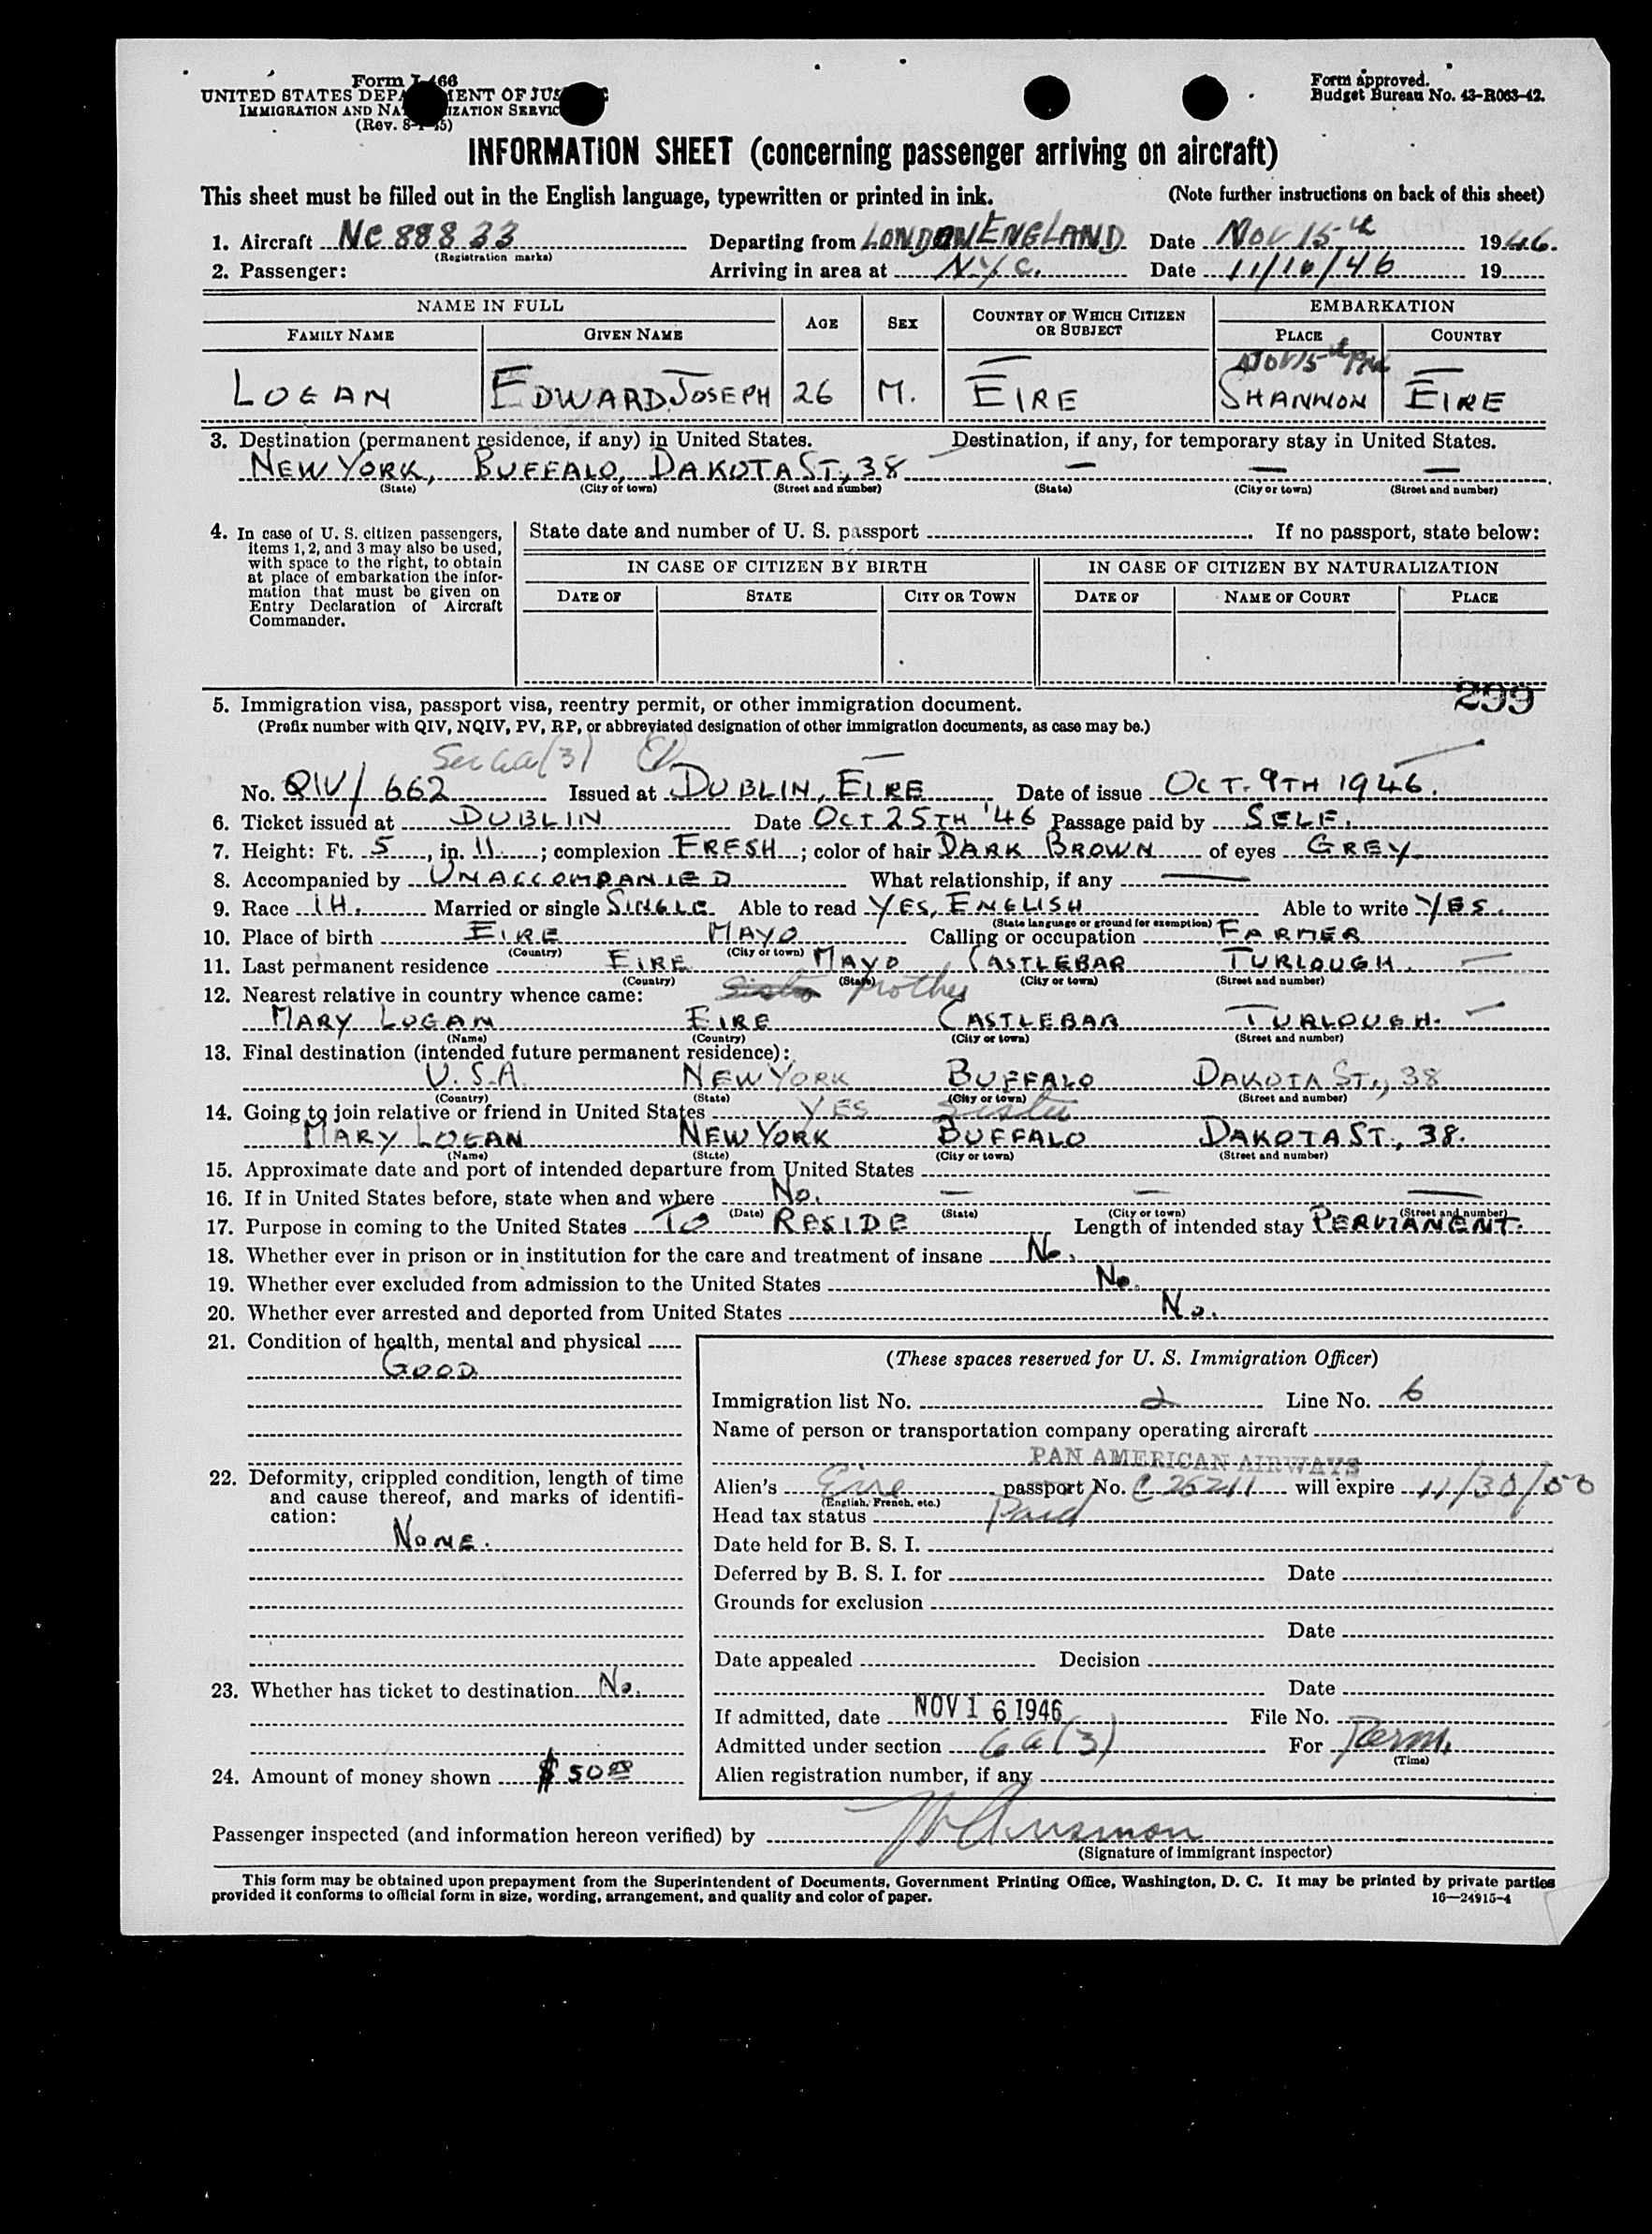 Form I-466
UNITED STATES DEPARTMENT OF JUSTICE
IMMIGRATION AND NATURALIZATION SERVICE
(Rev. 8-1-45)
Form approved.
Budget Bureau No. 43-R063-42.
INFORMATION SHEET (concerning passenger arriving on aircraft)
This sheet must be filled out in the English language, typewritten or printed in ink. (Note further instructions on back of this sheet)
1. Aircraft NC 88833 Departing from LONDON ENGLAND Date Nov 15th 1946.
(Registration marks)
2. Passenger: Arriving in area at N.Y.C. Date 11/16/46 19
NAME IN FULL AGE SEX COUNTRY OF WHICH CITIZEN OR SUBJECT EMBARKATION
FAMILY NAME GIVEN NAME PLACE COUNTRY
Nov 15th
LOGAN EDWARD JOSEPH 26 M. EIRE SHANNON EIRE
3. Destination (permanent residence, if any) in United States. Destination, if any, for temporary stay in United States.
NEW YORK, BUFFALO, DAKOTA ST., 38 — — —
(State) (City or town) (Street and number) (State) (City or town) (Street and number)
4. In case of U. S. citizen passengers, items 1, 2, and 3 may also be used, with space to the right, to obtain at place of embarkation the information that must be given on Entry Declaration of Aircraft Commander.
State date and number of U. S. passport If no passport, state below:
IN CASE OF CITIZEN BY BIRTH IN CASE OF CITIZEN BY NATURALIZATION
DATE OF STATE CITY OR TOWN DATE OF NAME OF COURT PLACE
299
5. Immigration visa, passport visa, reentry permit, or other immigration document.
(Prefix number with QIV, NQIV, PV, RP, or abbreviated designation of other immigration documents, as case may be.)
Sec 6a(3)
No. QIV/ 662 Issued at DUBLIN, EIRE Date of issue OCT. 9TH 1946.
6. Ticket issued at DUBLIN Date OCT 25TH '46 Passage paid by SELF.
7. Height: Ft. 5, in. 11; complexion FRESH; color of hair DARK BROWN of eyes GREY
8. Accompanied by UNACCOMPANIED What relationship, if any —
9. Race IH. Married or single SINGLE Able to read YES, ENGLISH Able to write YES.
(State language or ground for exemption)
10. Place of birth EIRE MAYO Calling or occupation FARMER
(Country) (City or town)
11. Last permanent residence EIRE MAYO CASTLEBAR TURLOUGH.
(Country) (State) (City or town) (Street and number)
12. Nearest relative in country whence came: Sister Mother
MARY LOGAN EIRE CASTLEBAR TURLOUGH.
(Name) (Country) (City or town) (Street and number)
13. Final destination (intended future permanent residence):
U.S.A. NEW YORK BUFFALO DAKOTA ST., 38
(Country) (State) (City or town) (Street and number)
14. Going to join relative or friend in United States YES Sister
MARY LOGAN NEW YORK BUFFALO DAKOTA ST., 38.
(Name) (State) (City or town) (Street and number)
15. Approximate date and port of intended departure from United States
16. If in United States before, state when and where No. — — —
(Date) (State) (City or town) (Street and number)
17. Purpose in coming to the United States TO RESIDE Length of intended stay PERMANENT.
18. Whether ever in prison or in institution for the care and treatment of insane No.
19. Whether ever excluded from admission to the United States No.
20. Whether ever arrested and deported from United States No.
21. Condition of health, mental and physical
GOOD
22. Deformity, crippled condition, length of time and cause thereof, and marks of identification:
NONE.
23. Whether has ticket to destination No.
24. Amount of money shown $ 50 00
(These spaces reserved for U. S. Immigration Officer)
Immigration list No. 2 Line No. 6
Name of person or transportation company operating aircraft
PAN AMERICAN AIRWAYS
Alien's Eire passport No. C 26211 will expire 11/30/50
(English, French, etc.)
Head tax status Paid
Date held for B. S. I.
Deferred by B. S. I. for Date
Grounds for exclusion
Date
Date appealed Decision
Date
If admitted, date NOV 16 1946 File No.
Admitted under section 6a(3) For Perm.
(Time)
Alien registration number, if any
Passenger inspected (and information hereon verified) by
(Signature of immigrant inspector)
This form may be obtained upon prepayment from the Superintendent of Documents, Government Printing Office, Washington, D. C. It may be printed by private parties
provided it conforms to official form in size, wording, arrangement, and quality and color of paper. 16—24915-4